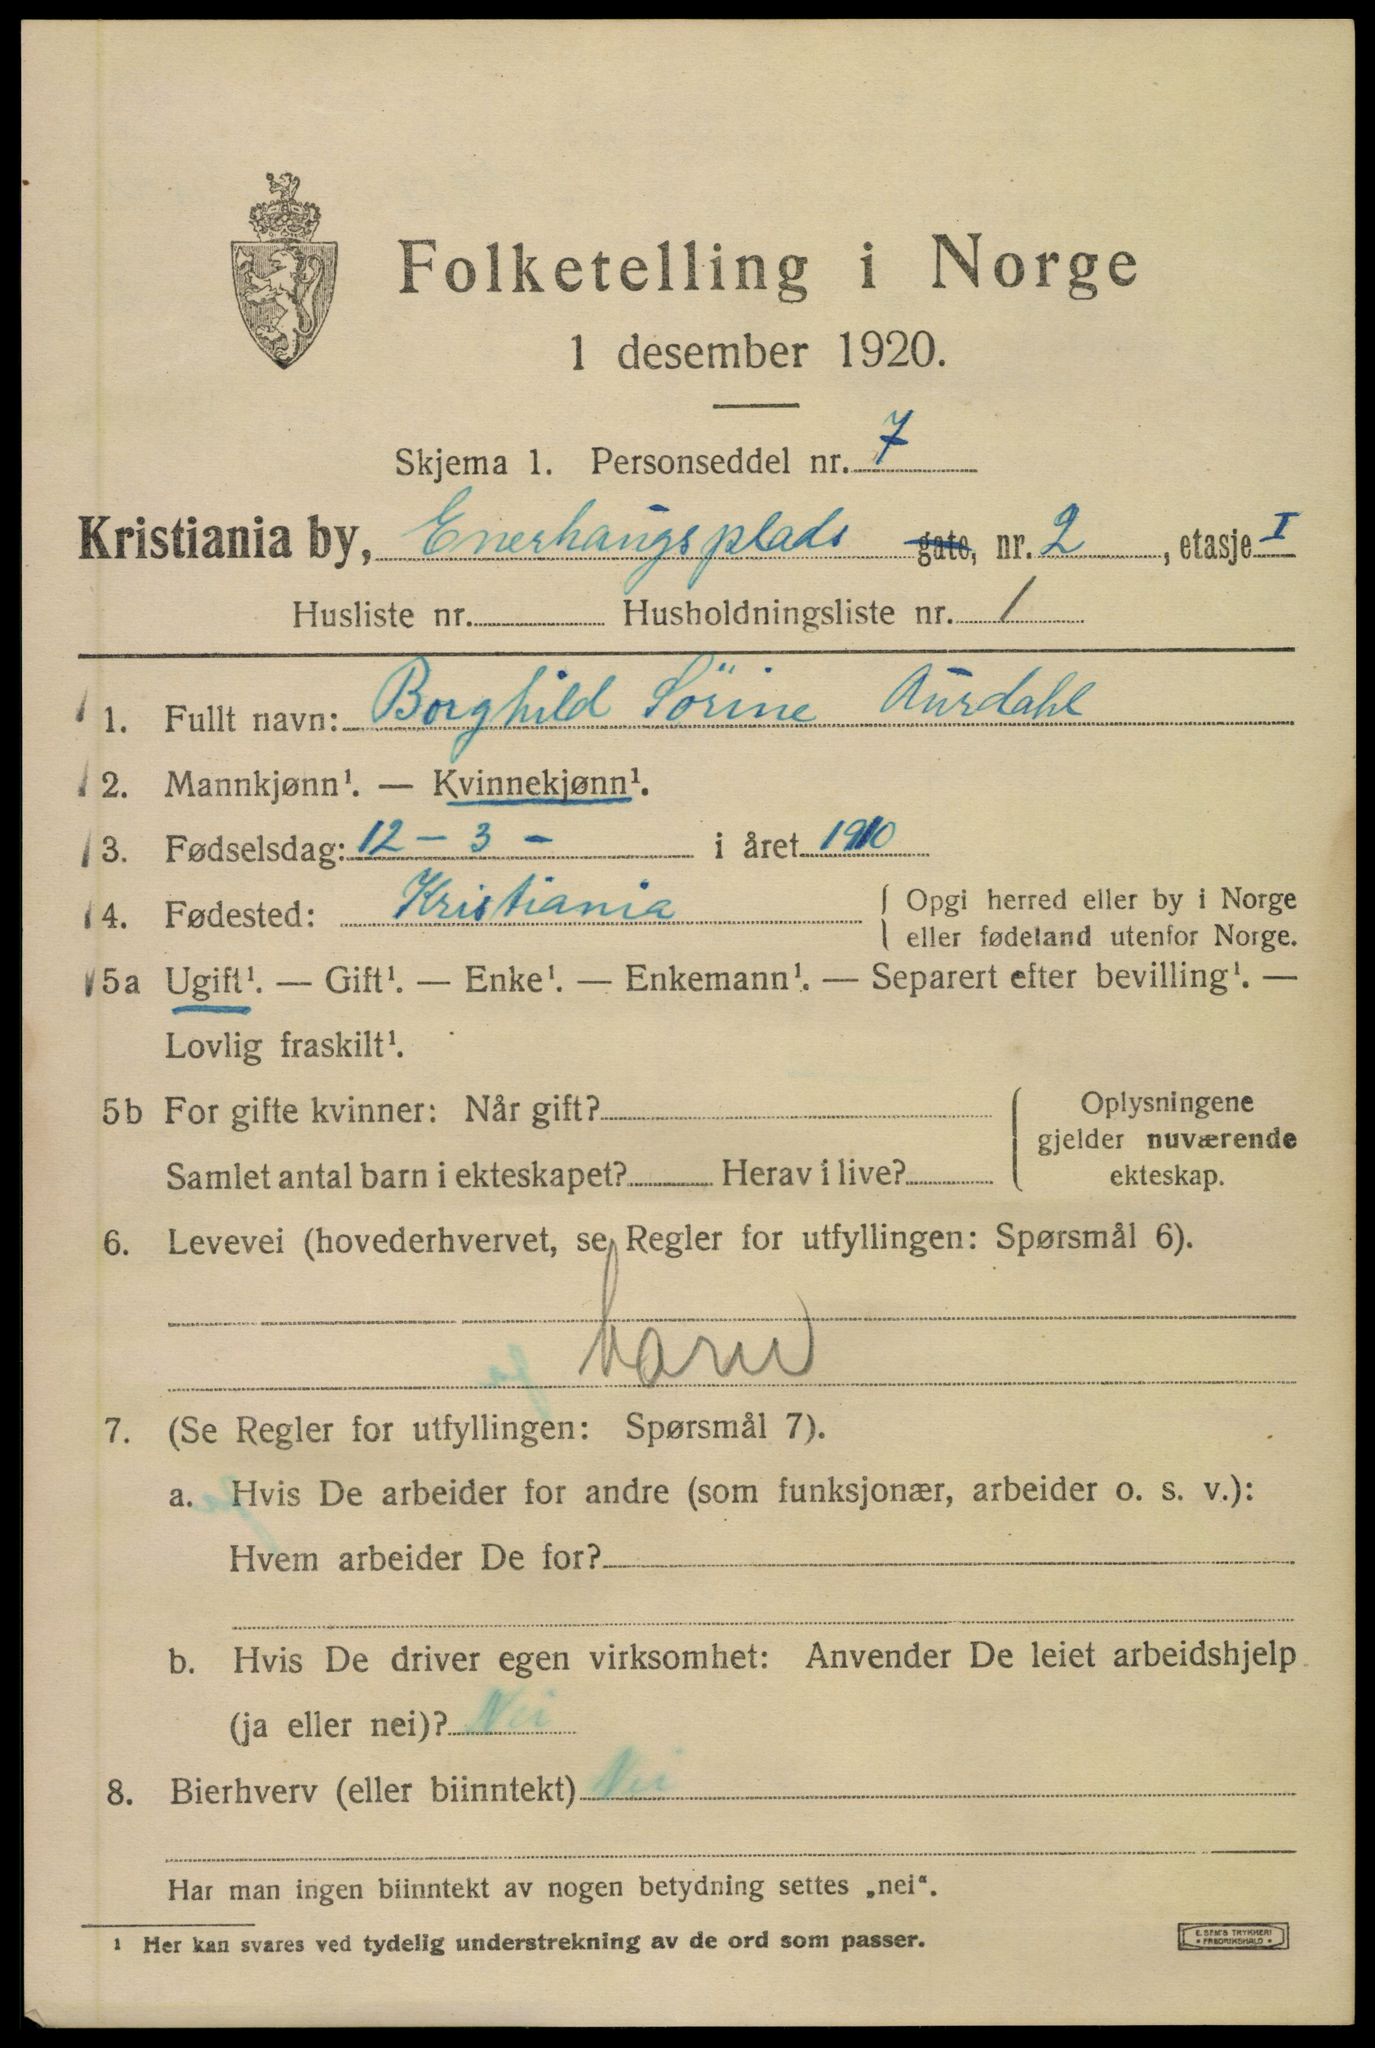 Folketelling i Norge
1 desember 1920.
Skjema 1. Personseddel nr. 7
Kristiania by, Enerhaugsplads gate, nr. 2, etasje I
Husliste nr. Husholdningsliste nr. 1
1. Fullt navn: Borghild Sörine Aurdahl
2. Mannkjønn¹. — Kvinnekjønn¹.
3. Fødselsdag: 12 - 3 - i året 1910
4. Fødested: Kristiania { Opgi herred eller by i Norge
eller fødeland utenfor Norge.
5a Ugift¹. — Gift¹. — Enke¹. — Enkemann¹. — Separert efter bevilling¹. —
Lovlig fraskilt¹.
5b For gifte kvinner: Når gift?
Samlet antal barn i ekteskapet? Herav i live?
{ Oplysningene
gjelder nuværende
ekteskap.
6. Levevei (hovederhvervet, se Regler for utfyllingen: Spørsmål 6).
barn
7. (Se Regler for utfyllingen: Spørsmål 7).
a. Hvis De arbeider for andre (som funksjonær, arbeider o. s. v.):
Hvem arbeider De for?
b. Hvis De driver egen virksomhet: Anvender De leiet arbeidshjelp
(ja eller nei)? Nei
8. Bierhverv (eller biinntekt) Nei
Har man ingen biinntekt av nogen betydning settes „nei“.
¹ Her kan svares ved tydelig understrekning av de ord som passer.
E. SEM'S TRYKKERI
• FREDRIKSHALD •